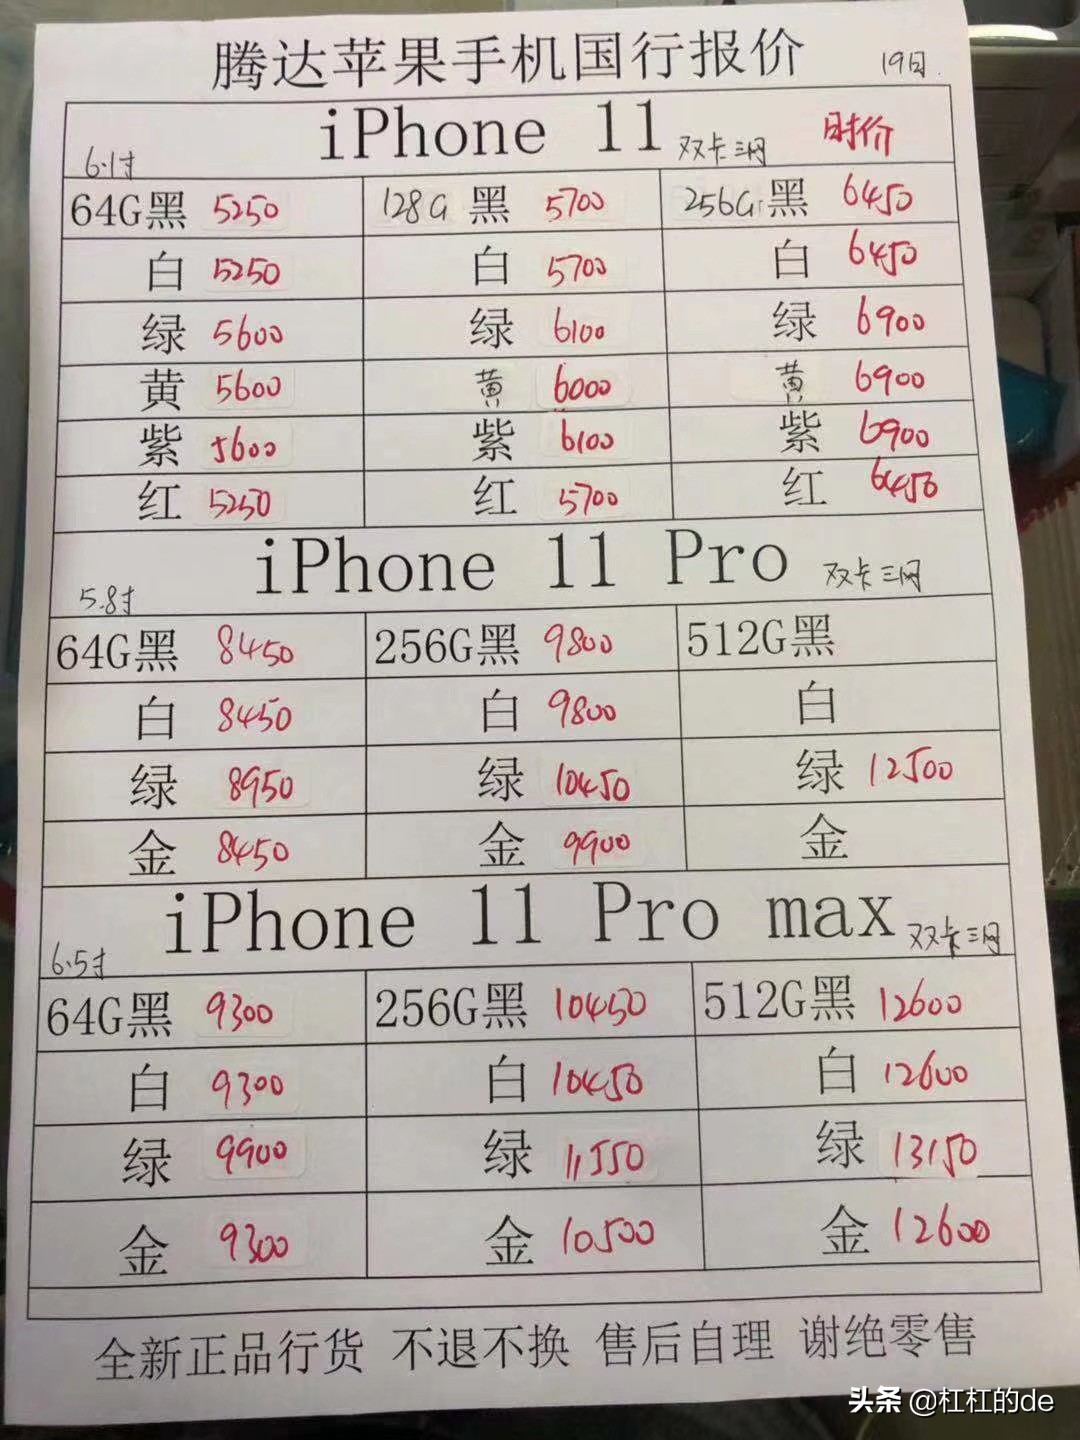 腾达苹果手机国行报价 19日.
iPhone 11 双卡三网 时价
6.1寸
64G黑 5250 128G 黑 5700 256G 黑 6450
白 5250 白 5700 白 6450
绿 5600 绿 6100 绿 6900
黄 5600 黄 6000 黄 6900
紫 5600 紫 6100 紫 6900
红 5250 红 5700 红 6450
iPhone 11 Pro 双卡三网
5.8寸
64G黑 8450 256G黑 9800 512G黑
白 8450 白 9800 白
绿 8950 绿 10450 绿 12500
金 8450 金 9900 金
iPhone 11 Pro max 双卡三网
6.5寸
64G黑 9300 256G黑 10450 512G黑 12600
白 9300 白 10450 白 12600
绿 9900 绿 11550 绿 13150
金 9300 金 10500 金 12600
全新正品行货 不退不换 售后自理 谢绝零售
头条 @杠杠的de